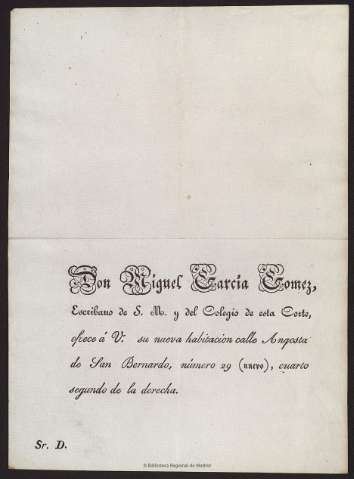 Don Miguel Garcia Gomez,
Escribano de S. M. y del Colegio de esta Corte,
ofrece á V. su nueva habitacion calle Angosta
de San Bernardo, número 29 (nuevo), cuarto
segundo de la derecha.
Sr. D.
© Biblioteca Regional de Madrid